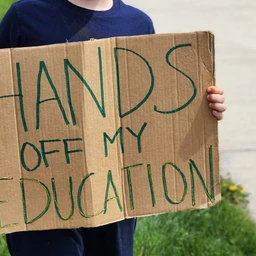 HANDS
OFF MY
EDUCATION